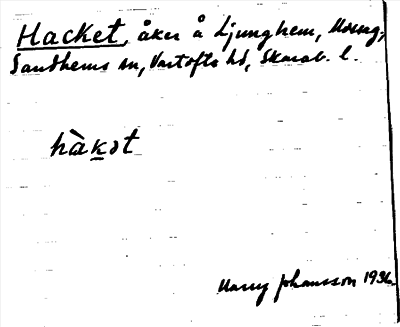 Hacket, åker å Ljunghem,
Sandhems sn, Vartofts hd, Skarab. l.
hàkət
Harry Johansson 1936.